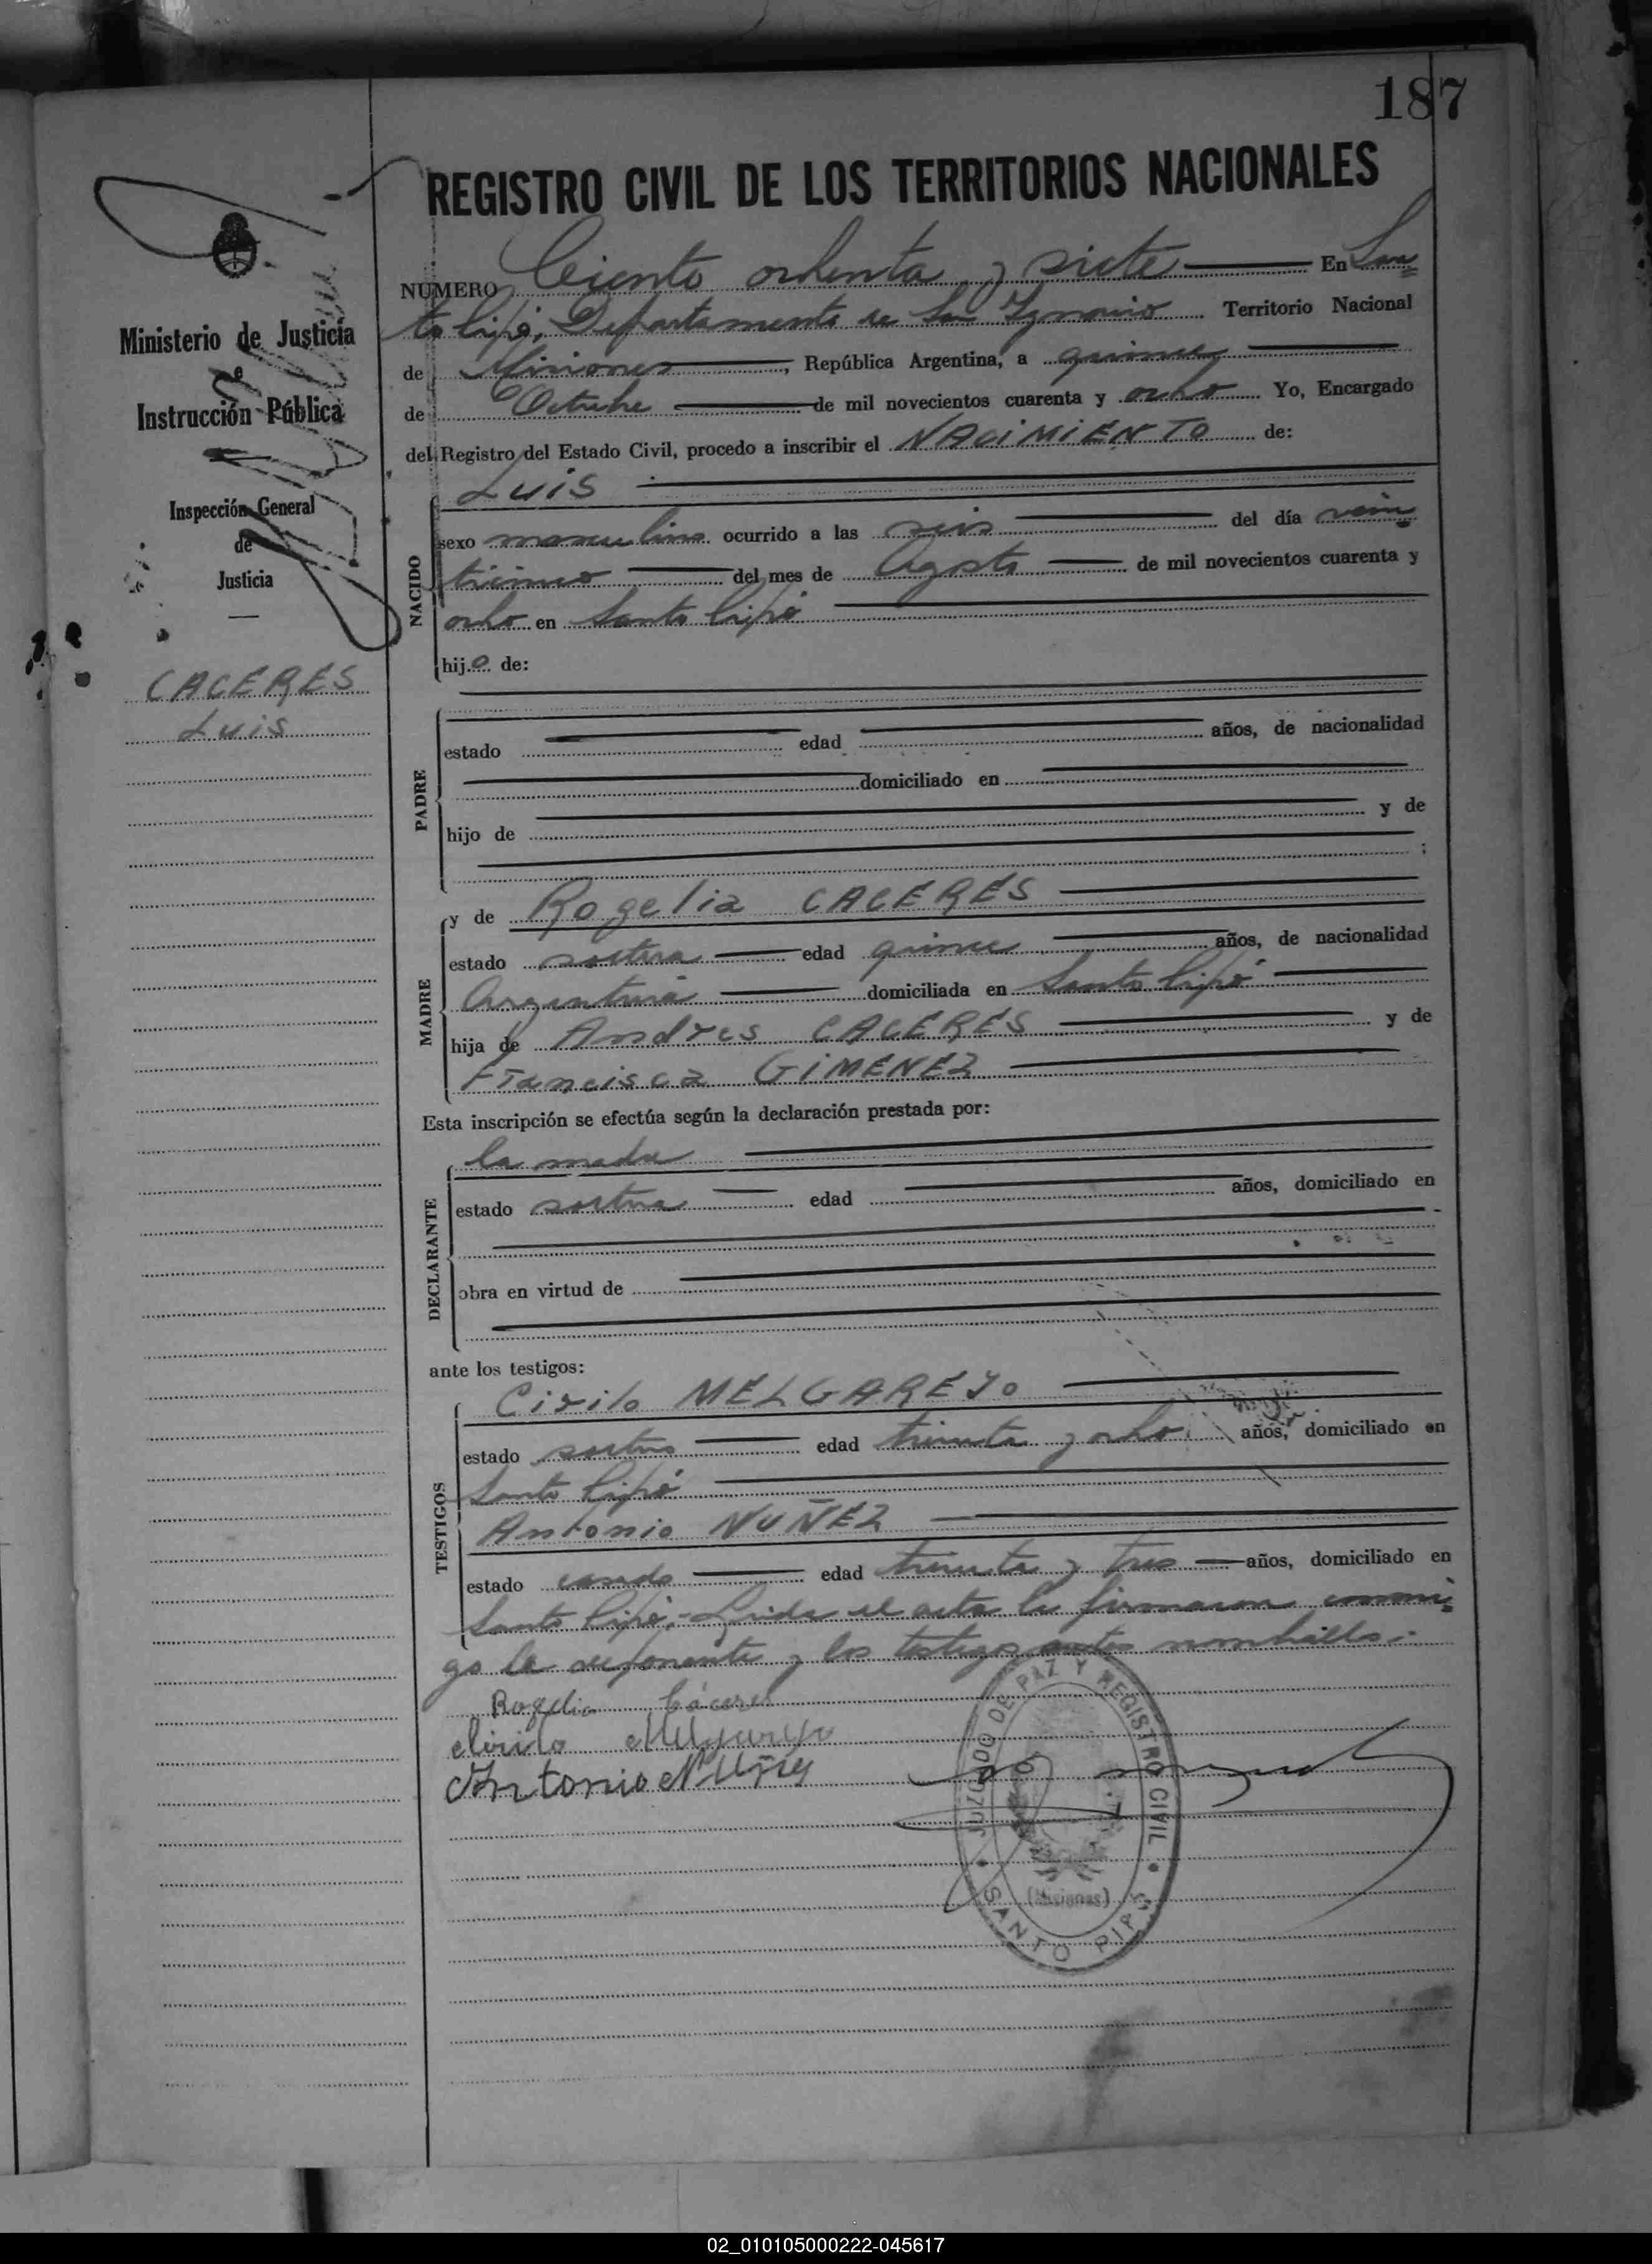 187
REGISTRO CIVIL DE LOS TERRITORIOS NACIONALES
NÚMERO Ciento ochenta y siete En San=
to Pipó, Departamento de San Ignacio Territorio Nacional
de Misiones, República Argentina, a quince
de Octubre de mil novecientos cuarenta y ocho Yo, Encargado
del Registro del Estado Civil, procedo a inscribir el NACIMIENTO de:
Ministerio de Justicia
e
Instrucción Pública
Inspección General
de
Justicia
CACERES
Luis
NACIDO
Luis
sexo masculino ocurrido a las seis del día vein=
ticinco del mes de Agosto de mil novecientos cuarenta y
ocho en Santo Pipó
hijo de:
PADRE
estado edad años, de nacionalidad
domiciliado en
hijo de y de
;
MADRE
y de Rogelia CACERES
estado soltera edad quince años, de nacionalidad
Argentina domiciliada en Santo Pipó
hija de Andres CACERES y de
Francisca GIMENEZ
Esta inscripción se efectúa según la declaración prestada por:
DECLARANTE
la madre
estado soltera edad años, domiciliado en
obra en virtud de
ante los testigos:
TESTIGOS
Cirilo MELGAREJO
estado soltero edad treinta y ocho años, domiciliado en
Santo Pipó
Antonio NUÑEZ
estado casado edad treinta y tres años, domiciliado en
Santo Pipó.- Leida el acta la firmaron conmi=
go la deponente y los testigos antes nombrados.-
Rogelia Cáceres
Cirilo Melgarejo
Antonio Nuñes
JUZGADO DE PAZ Y REGISTRO CIVIL
(Misiones)
SANTO PIPÓ
02_010105000222-045617